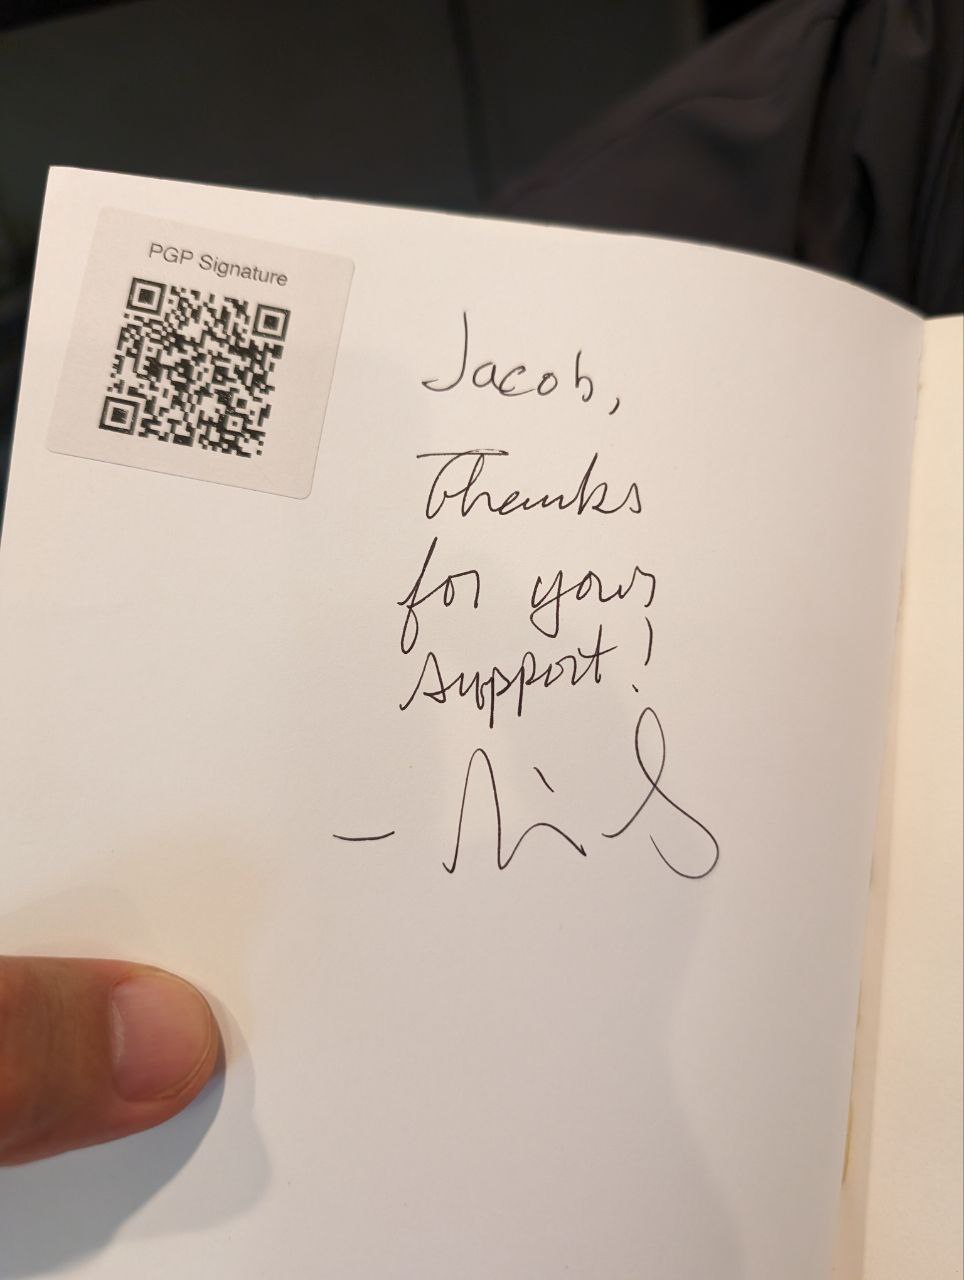 PGP Signature
Jacob,
Thanks
for your
support!